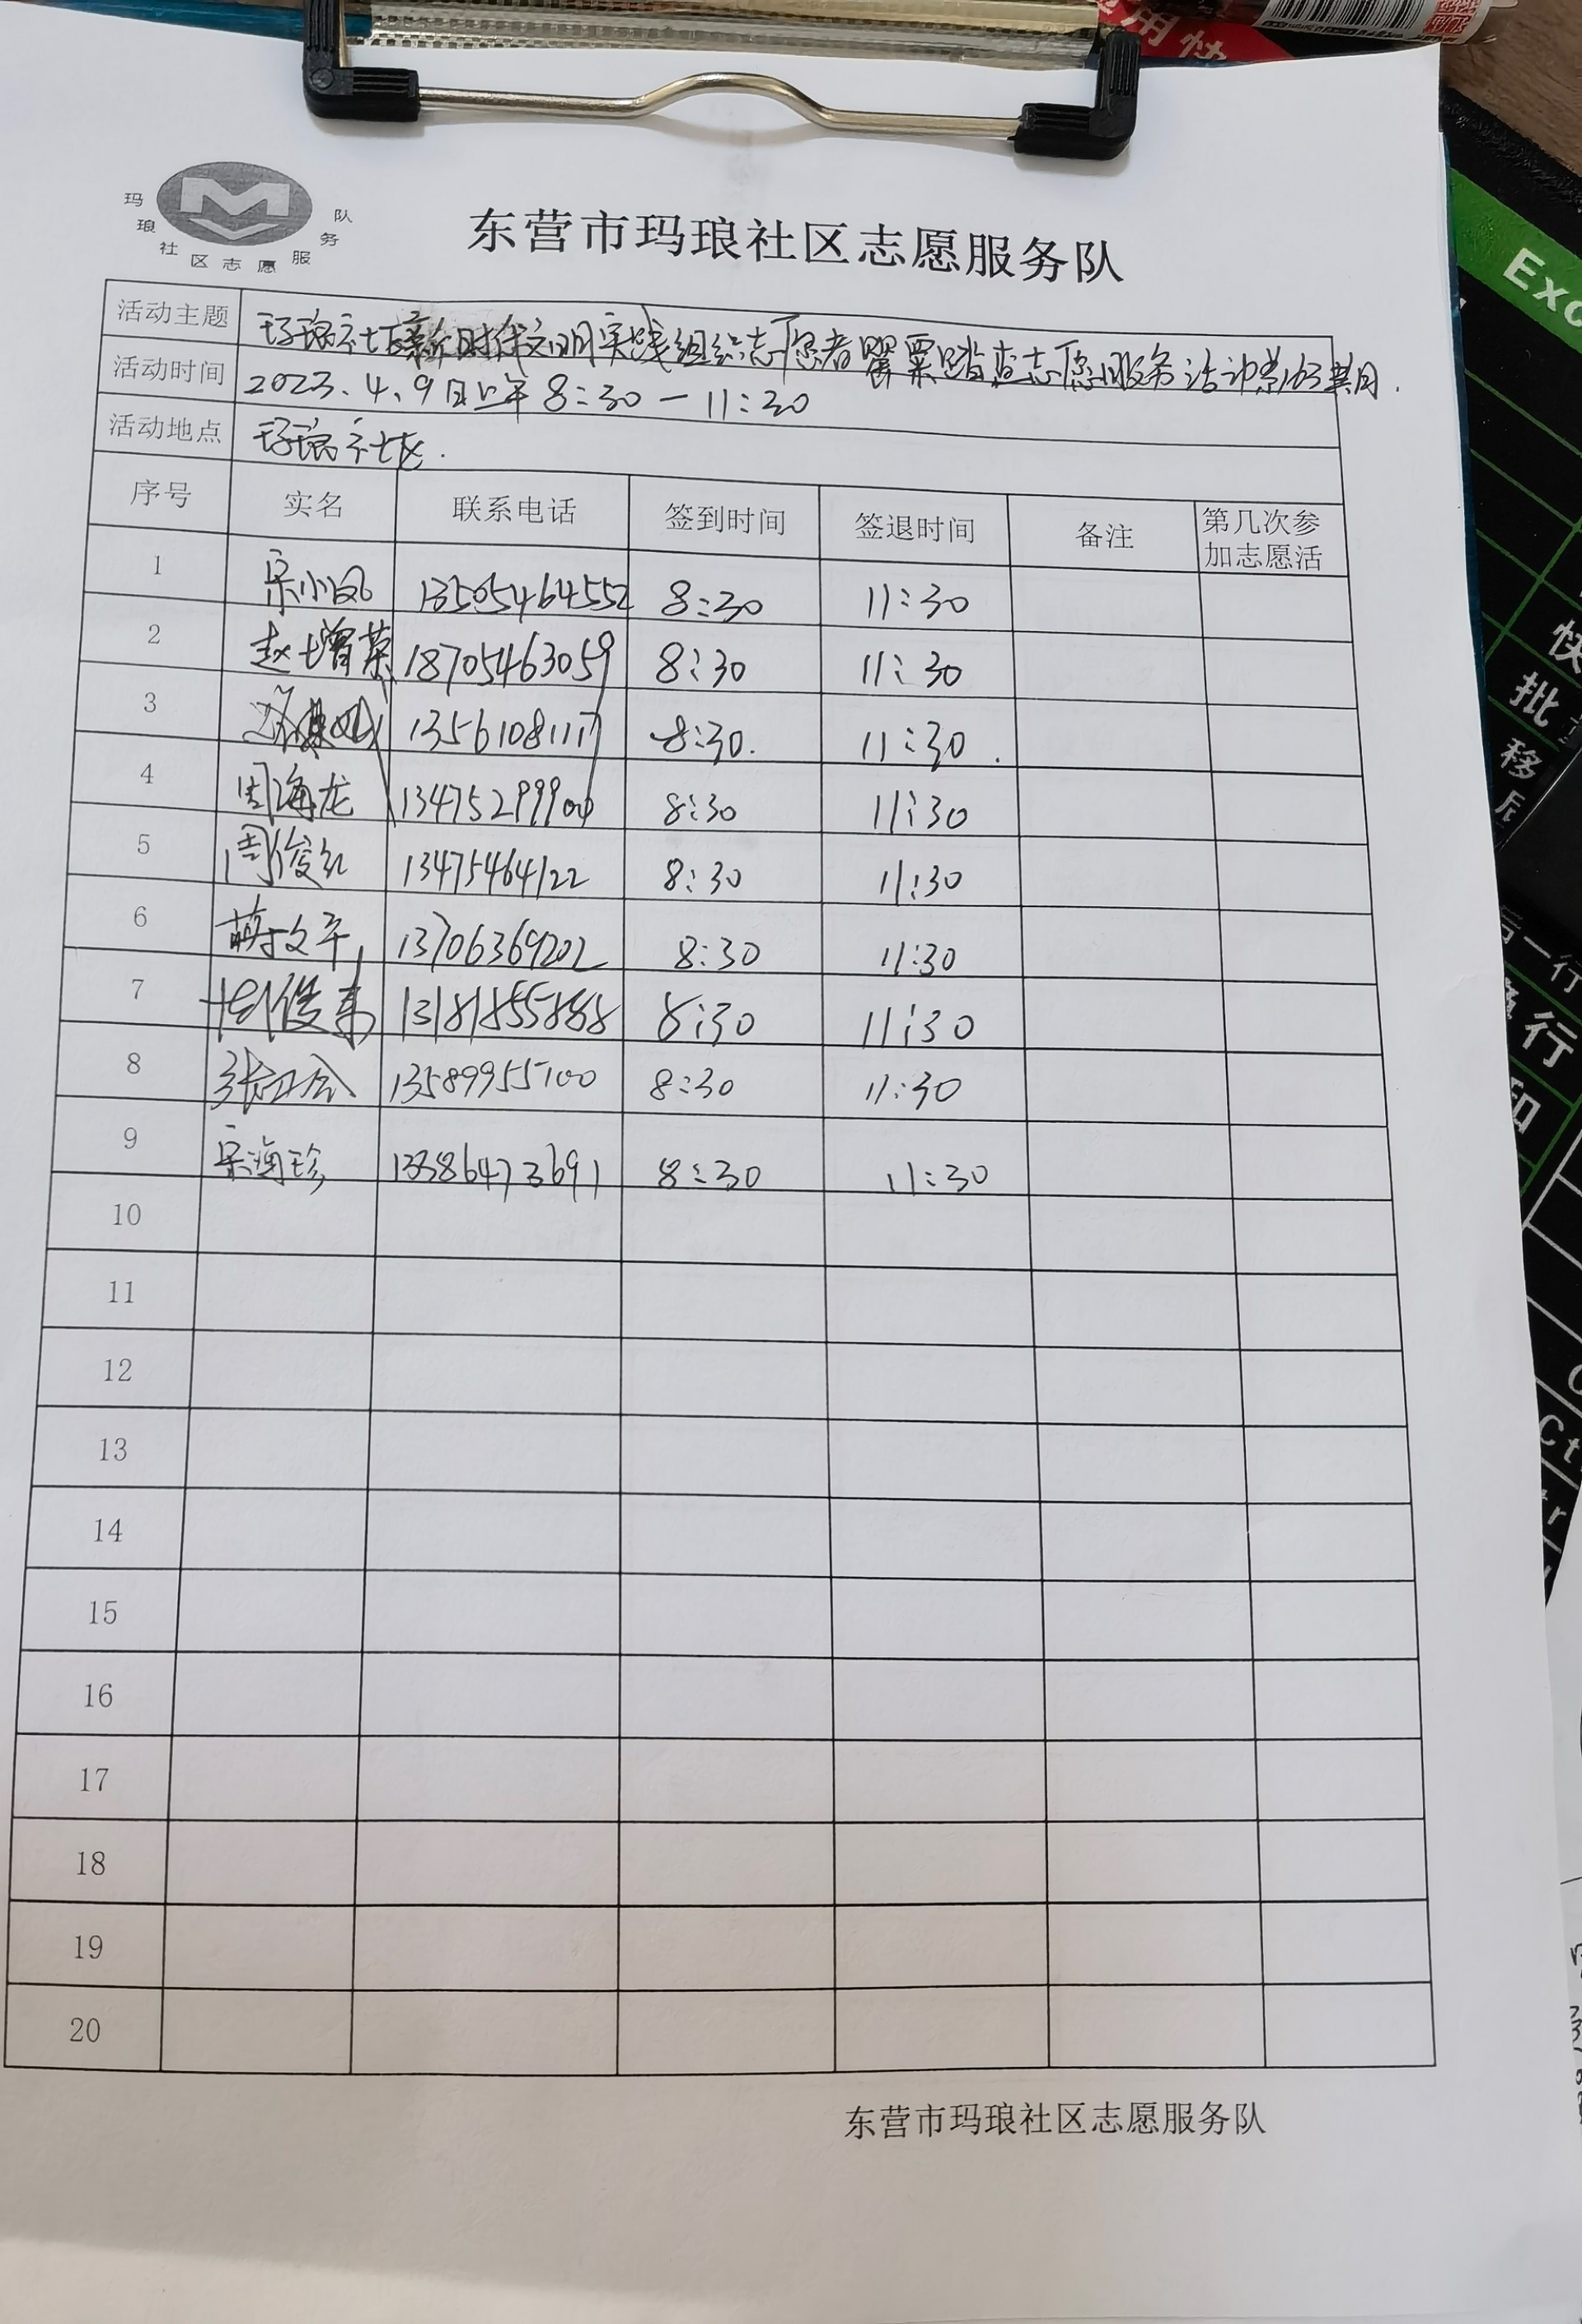 用快
玛琅社区志愿服务队
东营市玛琅社区志愿服务队
活动主题 玛琅社区新时代文明实践组织志愿者罂粟踏查志愿服务活动第163期
活动时间 2023.4.9日上午8:30—11:30
活动地点 玛琅社区.
序号 实名 联系电话 签到时间 签退时间 备注 第几次参加志愿活
1 宋小凤 13505464552 8:30 11:30
2 赵增荣 18705463059 8:30 11:30
3 13561081117 8:30. 11:30.
4 周海龙 13475299900 8:30 11:30
5 周俊红 13475464122 8:30 11:30
6 文平 13706369202 8:30 11:30
7 俊 13181855888 8:30 11:30
8 张 13589955100 8:30 11:30
9 宋海珍 13386473691 8:30 11:30
10
11
12
13
14
15
16
17
18
19
20
东营市玛琅社区志愿服务队
Exc
快
批
移
后一行
行
和
Ct